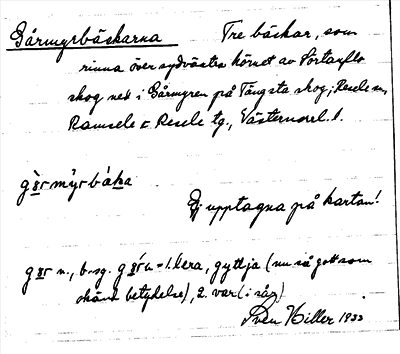 Gårmyrbäckarna Tre bäckar, som
rinna över sydvästra hörnet av Portanflo
skog ned i Gårmyren på Tängsta skog; Resele sn,
Ramsele o Resele tg., Västernorrl. l.
gɷ̀rmy̆rbäka
Ej upptagna på kartan!
n., b. sg. = 1. lera, gyttja (nu så gott som
okänd betydelse), 2. var (i sår)
Sven Hiller 1933